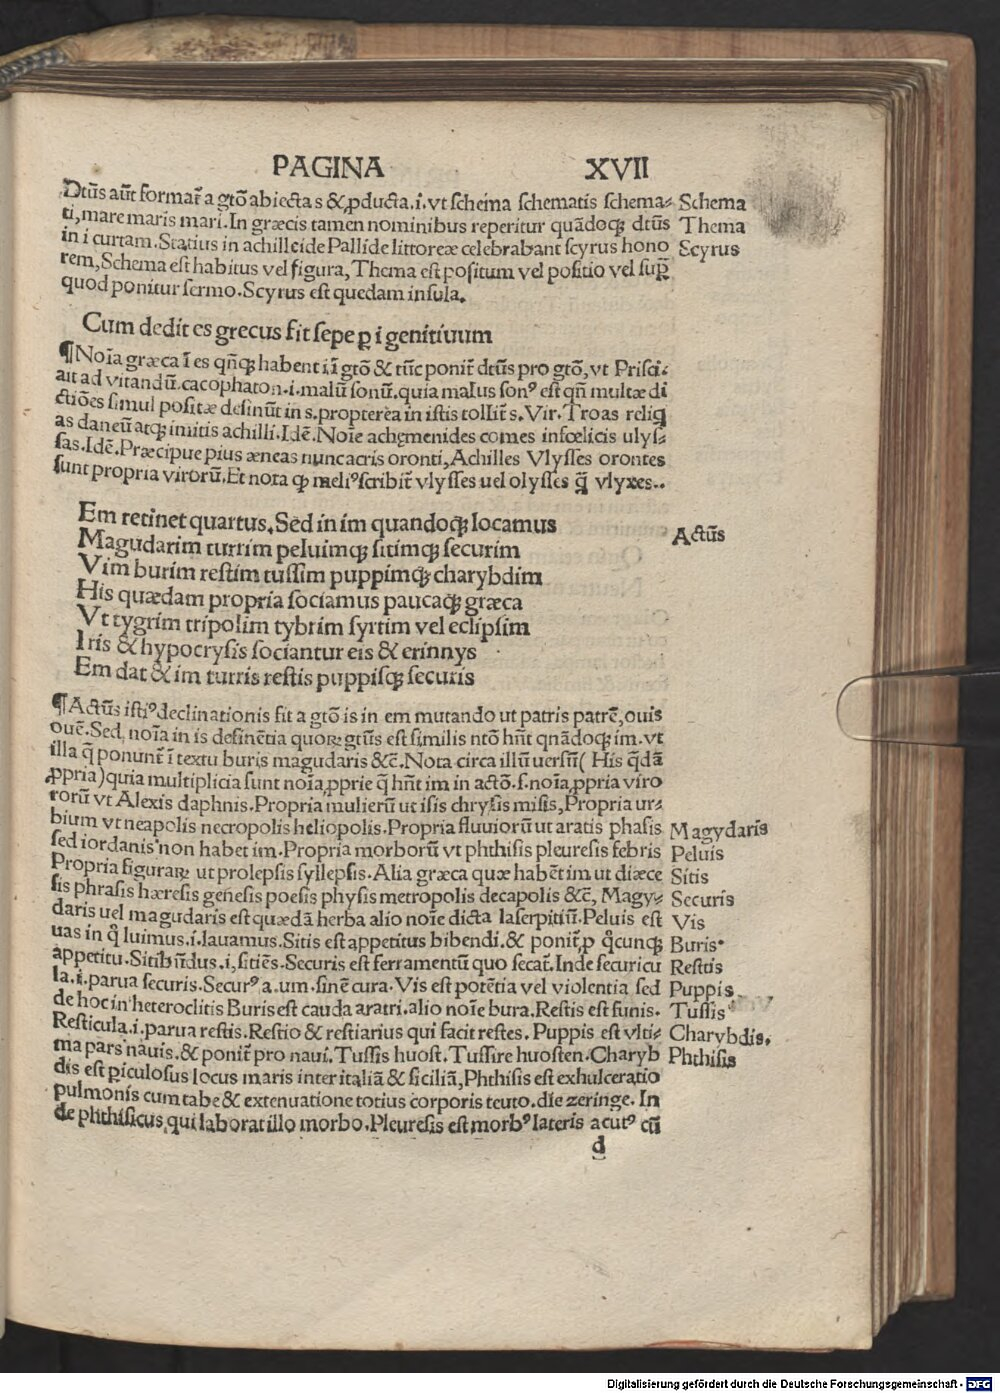 PAGINA XVII
Dtūs aūt format᷑ a gtō abiecta s &ꝓducta.i.vt schema schematis schema⸗ Schema
ti,mare maris mari.In græcis tamen nominibus reperitur quādoqꝫ dtūs Thema
in i curtam.Statius in achilleide Pallide littoreæ celebrabant scyrus hono Scyrus
rem,Schema est habitus vel figura,Thema est positum vel positio vel sup̄
quod ponitur sermo.Scyrus est quedam insula.
Cum dedit es grecus fit sepe ꝑ i genitiuum
¶Noīa græca ī es qn̄qꝫ habent ii ī gtō & tūc ponit᷑ dtūs pro gtō,vt Prisci⸗
ait ad vitandū.cacophaton.i.malū sonū.quia malus sonꝰ est qn̄ multæ di
ctiōes simul positæ desinūt in s.propterea in istis tollit᷑ s.Vir.Troas reliq̄
as daneū atqꝫ imitis achilli.Idē.Noīe achgmenides comes infœlicis ulys⸗
sas.Idē.Præcipue pius æneas nunc acris oronti,Achilles Vlysses orontes
sunt propria virorū.Et nota ꝙ meliꝰscribit᷑ vlysses uel olysses q̄ vlyxes..
Em retinet quartus.Sed in im quandoqꝫ locamus
Magudarim turrim peluimqꝫ sitimqꝫ securim Actūs
Vim burim restim tussim puppimqꝫ charybdim
His quædam propria sociamus paucaqꝫ græca
Vt tygrim tripolim tybrim syrtim vel eclipsim
Iris & hypocrysis sociantur eis & erinnys
Em dat & im turris restis puppisqꝫ securis
¶Actūs istiꝰ declinationis fit a gtō is in em mutando ut patris patrē,ouis
ouē.Sed noīa in is desinētia quoꝝ gtūs est similis ntō hn̄t qnādoqꝫ im.vt
illa q̄ ponunt᷑ ī textu buris magudaris &c̄.Nota circa illū uersū( His q̄dā
ꝓpria)quia multiplicia sunt noīa ꝓprie q̄ hn̄t im in actō.s.noīa ꝓpria viro
rorū vt Alexis daphnis.Propria mulierū ut isis chrysis misis,Propria ur⸗
bium vt neapolis necropolis heliopolis.Propria fluuiorū ut aratis phasis Magydaris
sed iordanis non habet im.Propria morborū vt phthisis pleuresis febris Peluis
Propria figuraꝝ ut prolepsis syllepsis.Alia græca quæ habēt im ut diœce Sitis
sis phrasis hæresis genesis poesis physis metropolis decapolis &c̄, Magy⸗ Securis
daris uel magudaris est quædā herba alio noīe dicta laserpitiū.Peluis est Vis
uas in q̊ luimus.i.lauamus.Sitis est appetitus bibendi.& ponit᷑ ꝓ q̊cunqꝫ Buris
appetitu.Sitibūdus.i,sitiēs.Securis est ferramentū quo secat᷑.Inde securicu Restis
la.i.parua securis.Securꝰ.a.um.sine cura.Vis est potētia vel violentia sed Puppis
de hoc in heteroclitis Buris est cauda aratri.alio noīe bura.Restis est funis. Tussis
Resticula.i.parua restis.Restio & restiarius qui facit restes. Puppis est vlti⸗ Charybdis.
ma pars nauis.& ponit᷑ pro naui.Tussis huost.Tussire huosten.Charyb Phthisis
dis est ꝑiculosus locus maris inter italiā & siciliā,Phthisis est exhulceratio
pulmonis cum tabe & extenuatione totius corporis teuto.die zeringe. In
de phthisicus qui laborat illo morbo.Pleuresis est morbꝰ lateris acutꝰ cū
d
Digitalisierung gefördert durch die Deutsche Forschungsgemeinschaft - DFG